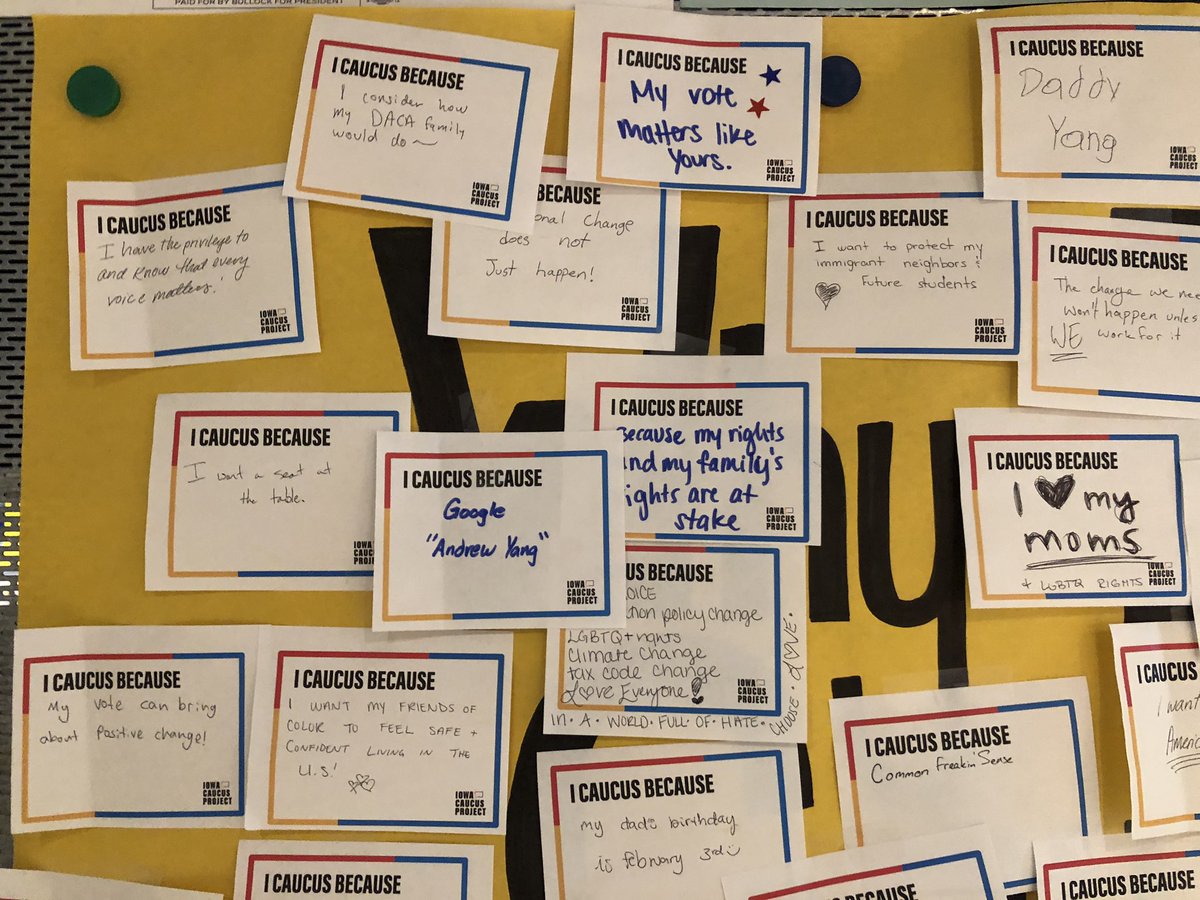 PAID FOR BY BULLOCK FOR PRESIDENT
I CAUCUS BECAUSE
I consider how
my DACA family
would do~
IOWA
CAUCUS
PROJECT
I CAUCUS BECAUSE
My vote
matters like
yours.
IOWA
CAUCUS
PROJECT
I CAUCUS BECAUSE
Daddy
Yang
IOWA
CAUCUS
PROJECT
I CAUCUS BECAUSE
I have the privilege to
and know that every
voice matters!
IOWA
CAUCUS
PROJECT
BECAUSE
Change
does not
Just happen!
IOWA
CAUCUS
PROJECT
I CAUCUS BECAUSE
I want to protect my
immigrant neighbors &
Future students
IOWA
CAUCUS
PROJECT
I CAUCUS BECAUSE
The change we
won't happen
WE work for it
I CAUCUS BECAUSE
I want a seat at
the table.
IOWA
CAUCUS
I CAUCUS BECAUSE
Google
"Andrew Yang"
IOWA
CAUCUS
PROJECT
I CAUCUS BECAUSE
Because my rights
and my family's
rights are at
stake
IOWA
CAUCUS
PROJECT
I CAUCUS BECAUSE
I ♥ my
moms
+ LGBTQ RIGHTS
IOWA
CAUCUS
PROJECT
BECAUSE
policy change
LGBTQ+ rights
climate change
tax code change
Love Everyone!
IN • A • WORLD • FULL • OF • HATE •
CHOOSE • LOVE •
IOWA
CAUCUS
PROJECT
I CAUCUS BECAUSE
My vote can bring
about positive change!
IOWA
CAUCUS
PROJECT
I CAUCUS BECAUSE
I WANT MY FRIENDS OF
COLOR TO FEEL SAFE +
CONFIDENT LIVING IN THE
U.S.!
IOWA
CAUCUS
PROJECT
I CAUCUS BECAUSE
my dad's birthday
is february 3rd
I CAUCUS BECAUSE
Common Freakin' Sense
I CAUCUS
I want
I CAUCUS BECAUSE
BECAUSE
I CAUCUS BECAUSE